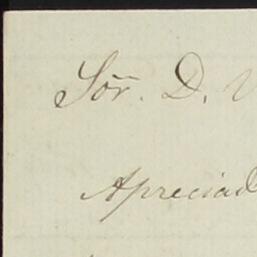 Sör. D.
Apreciad